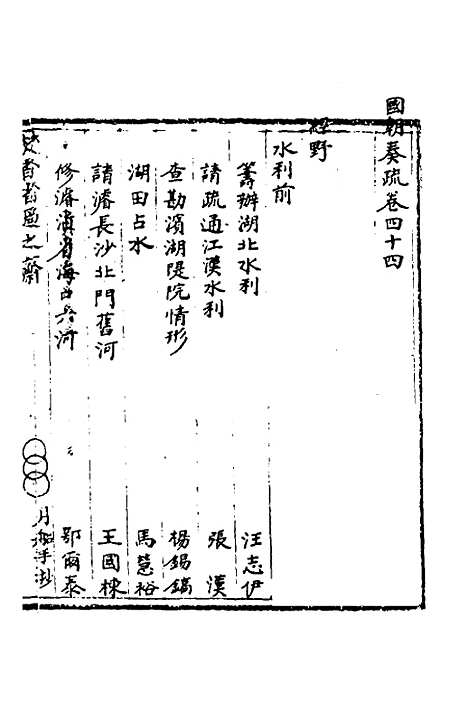 國朝奏疏卷四十四
經野
水利前
籌辦湖北水利 汪志伊
請疏通江漢水利 張漢
查勘濱湖隄院情形 楊錫鏹
湖田占水 馬慧裕
請濬長沙北門舊河 王國棟
修濬滇省海口六河 鄂爾泰
之齋
月 手